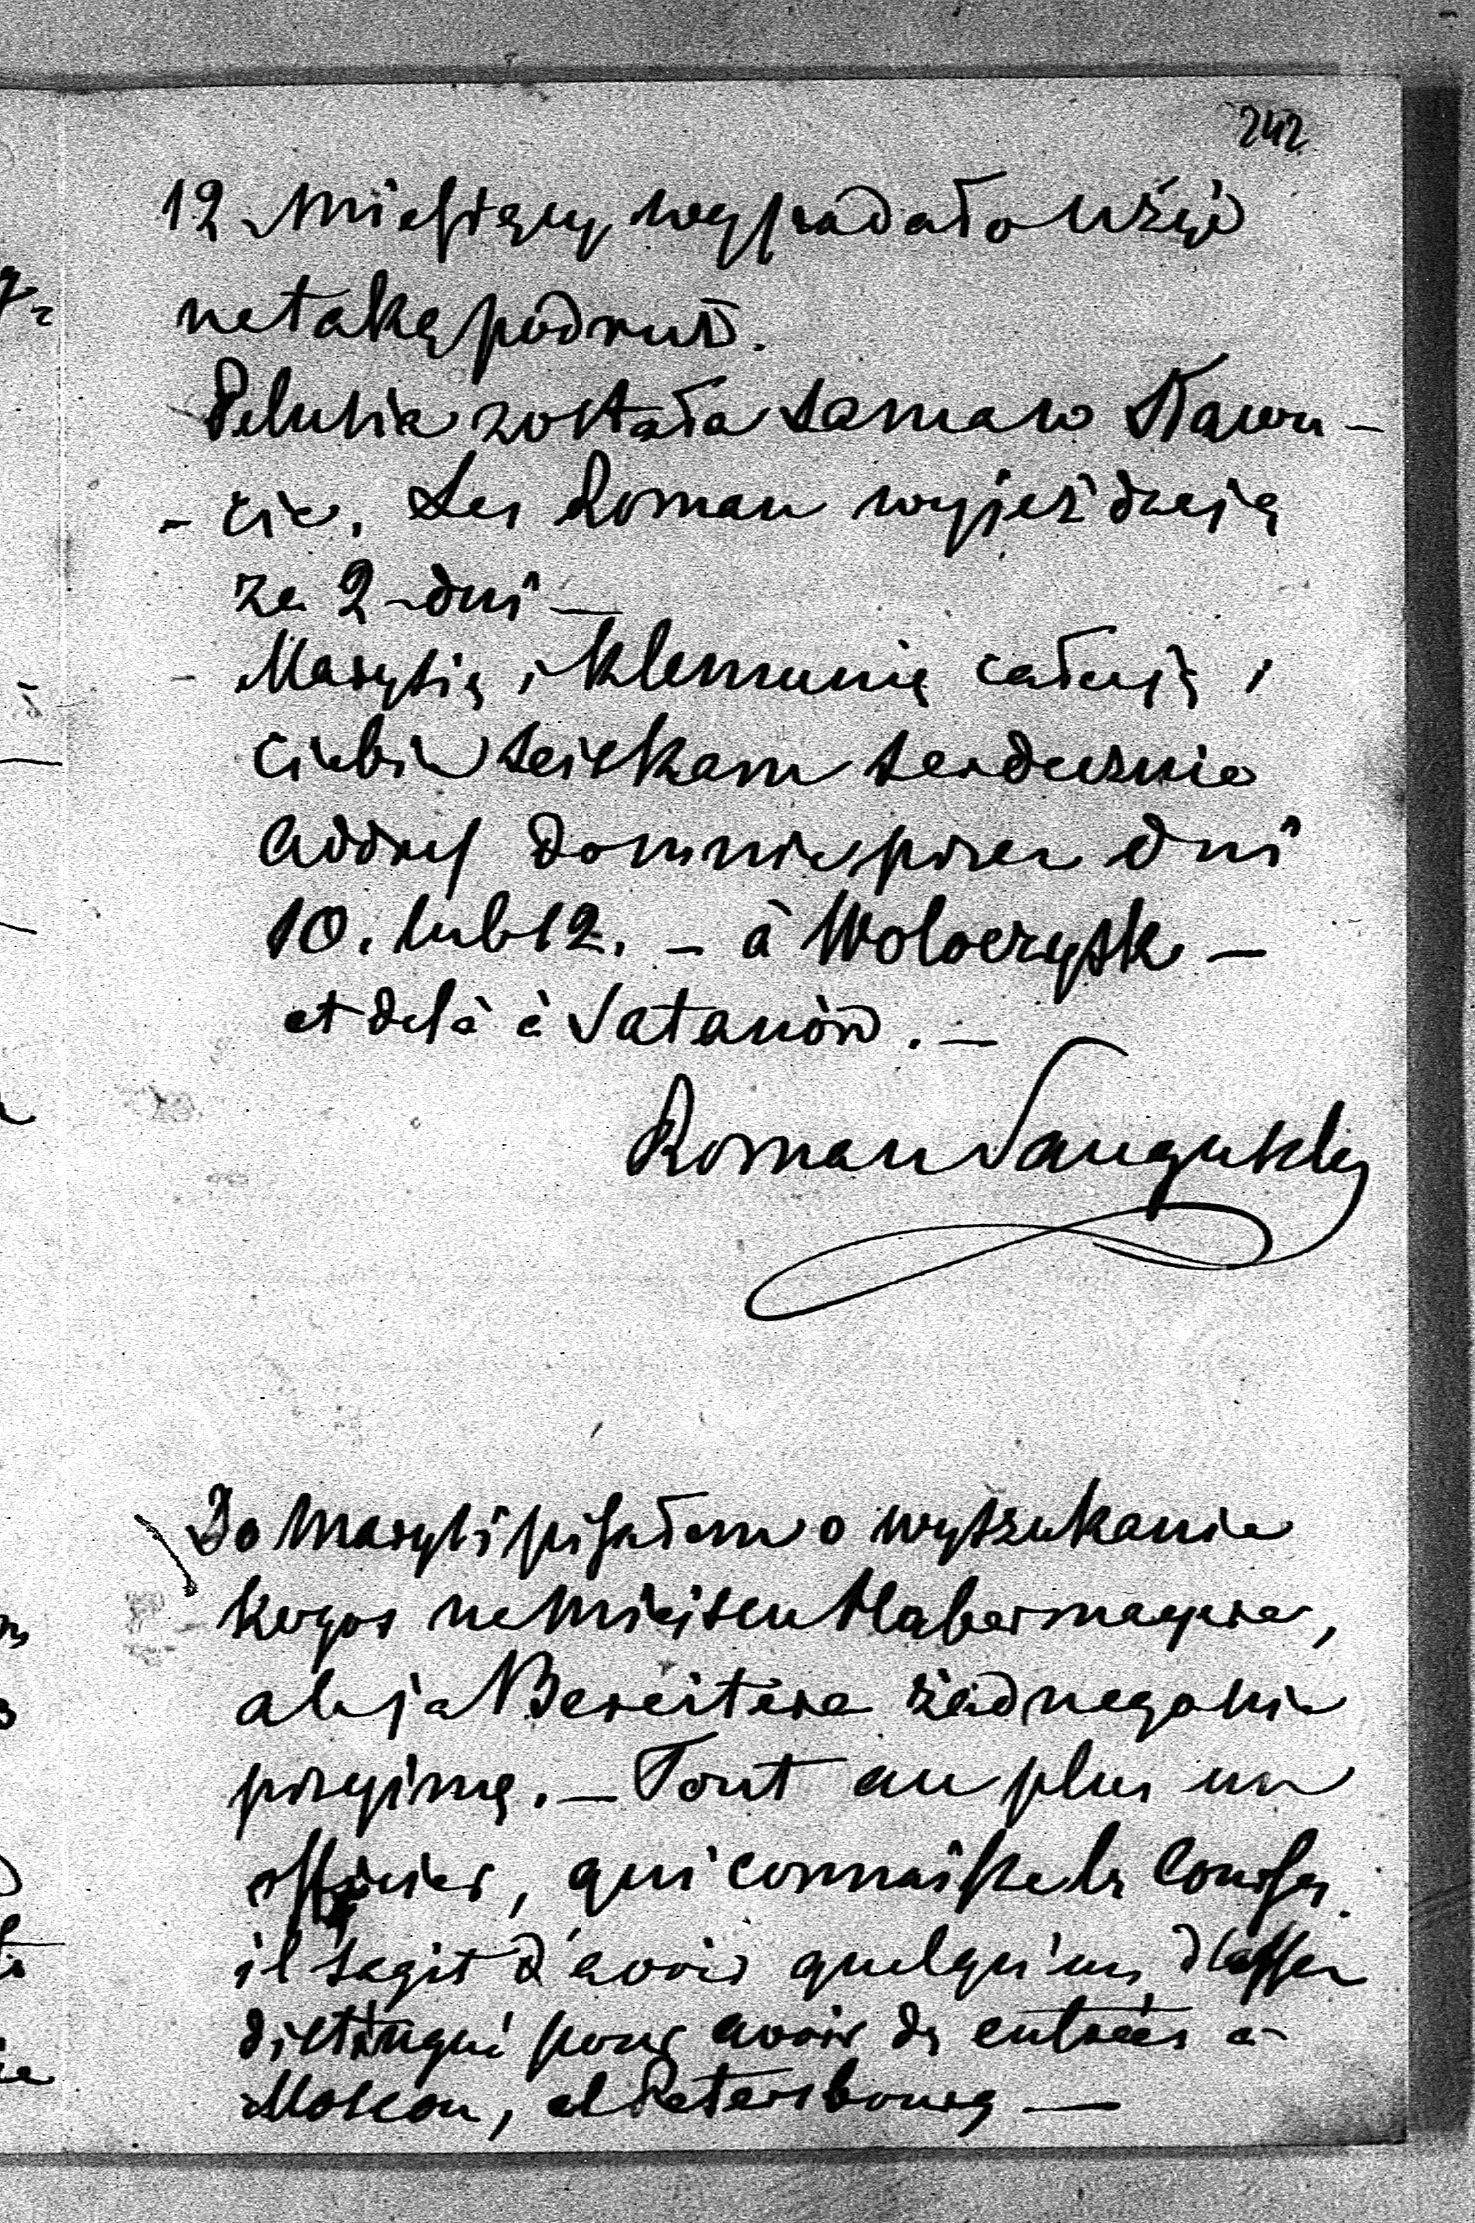 242
12 Miesięcy wypadało użyć
na taką podruż.
Pelusia została sama w Sławu-
- cie. Les Roman wyjeżdzają
za 2 dni —
Marysią i Klemunią całuję i
Ciebie sciskam serdecznie
Addres do mnie przez dni
10. lub 12. — à Woloczysk —
et delà à Satanów. —
Roman Sangusko
Do Marysi pisałem o wyszukanie
kogos na miejscu Habermayera,
ale ja Bereitera żadnego nie
przyimę. — Tout au plus un
officier, qui connaisse les Courses
il sagit d'avoir quelqu'un d'assez
distingué pour avoir des entrées à
Moscou, et Petersbourg —